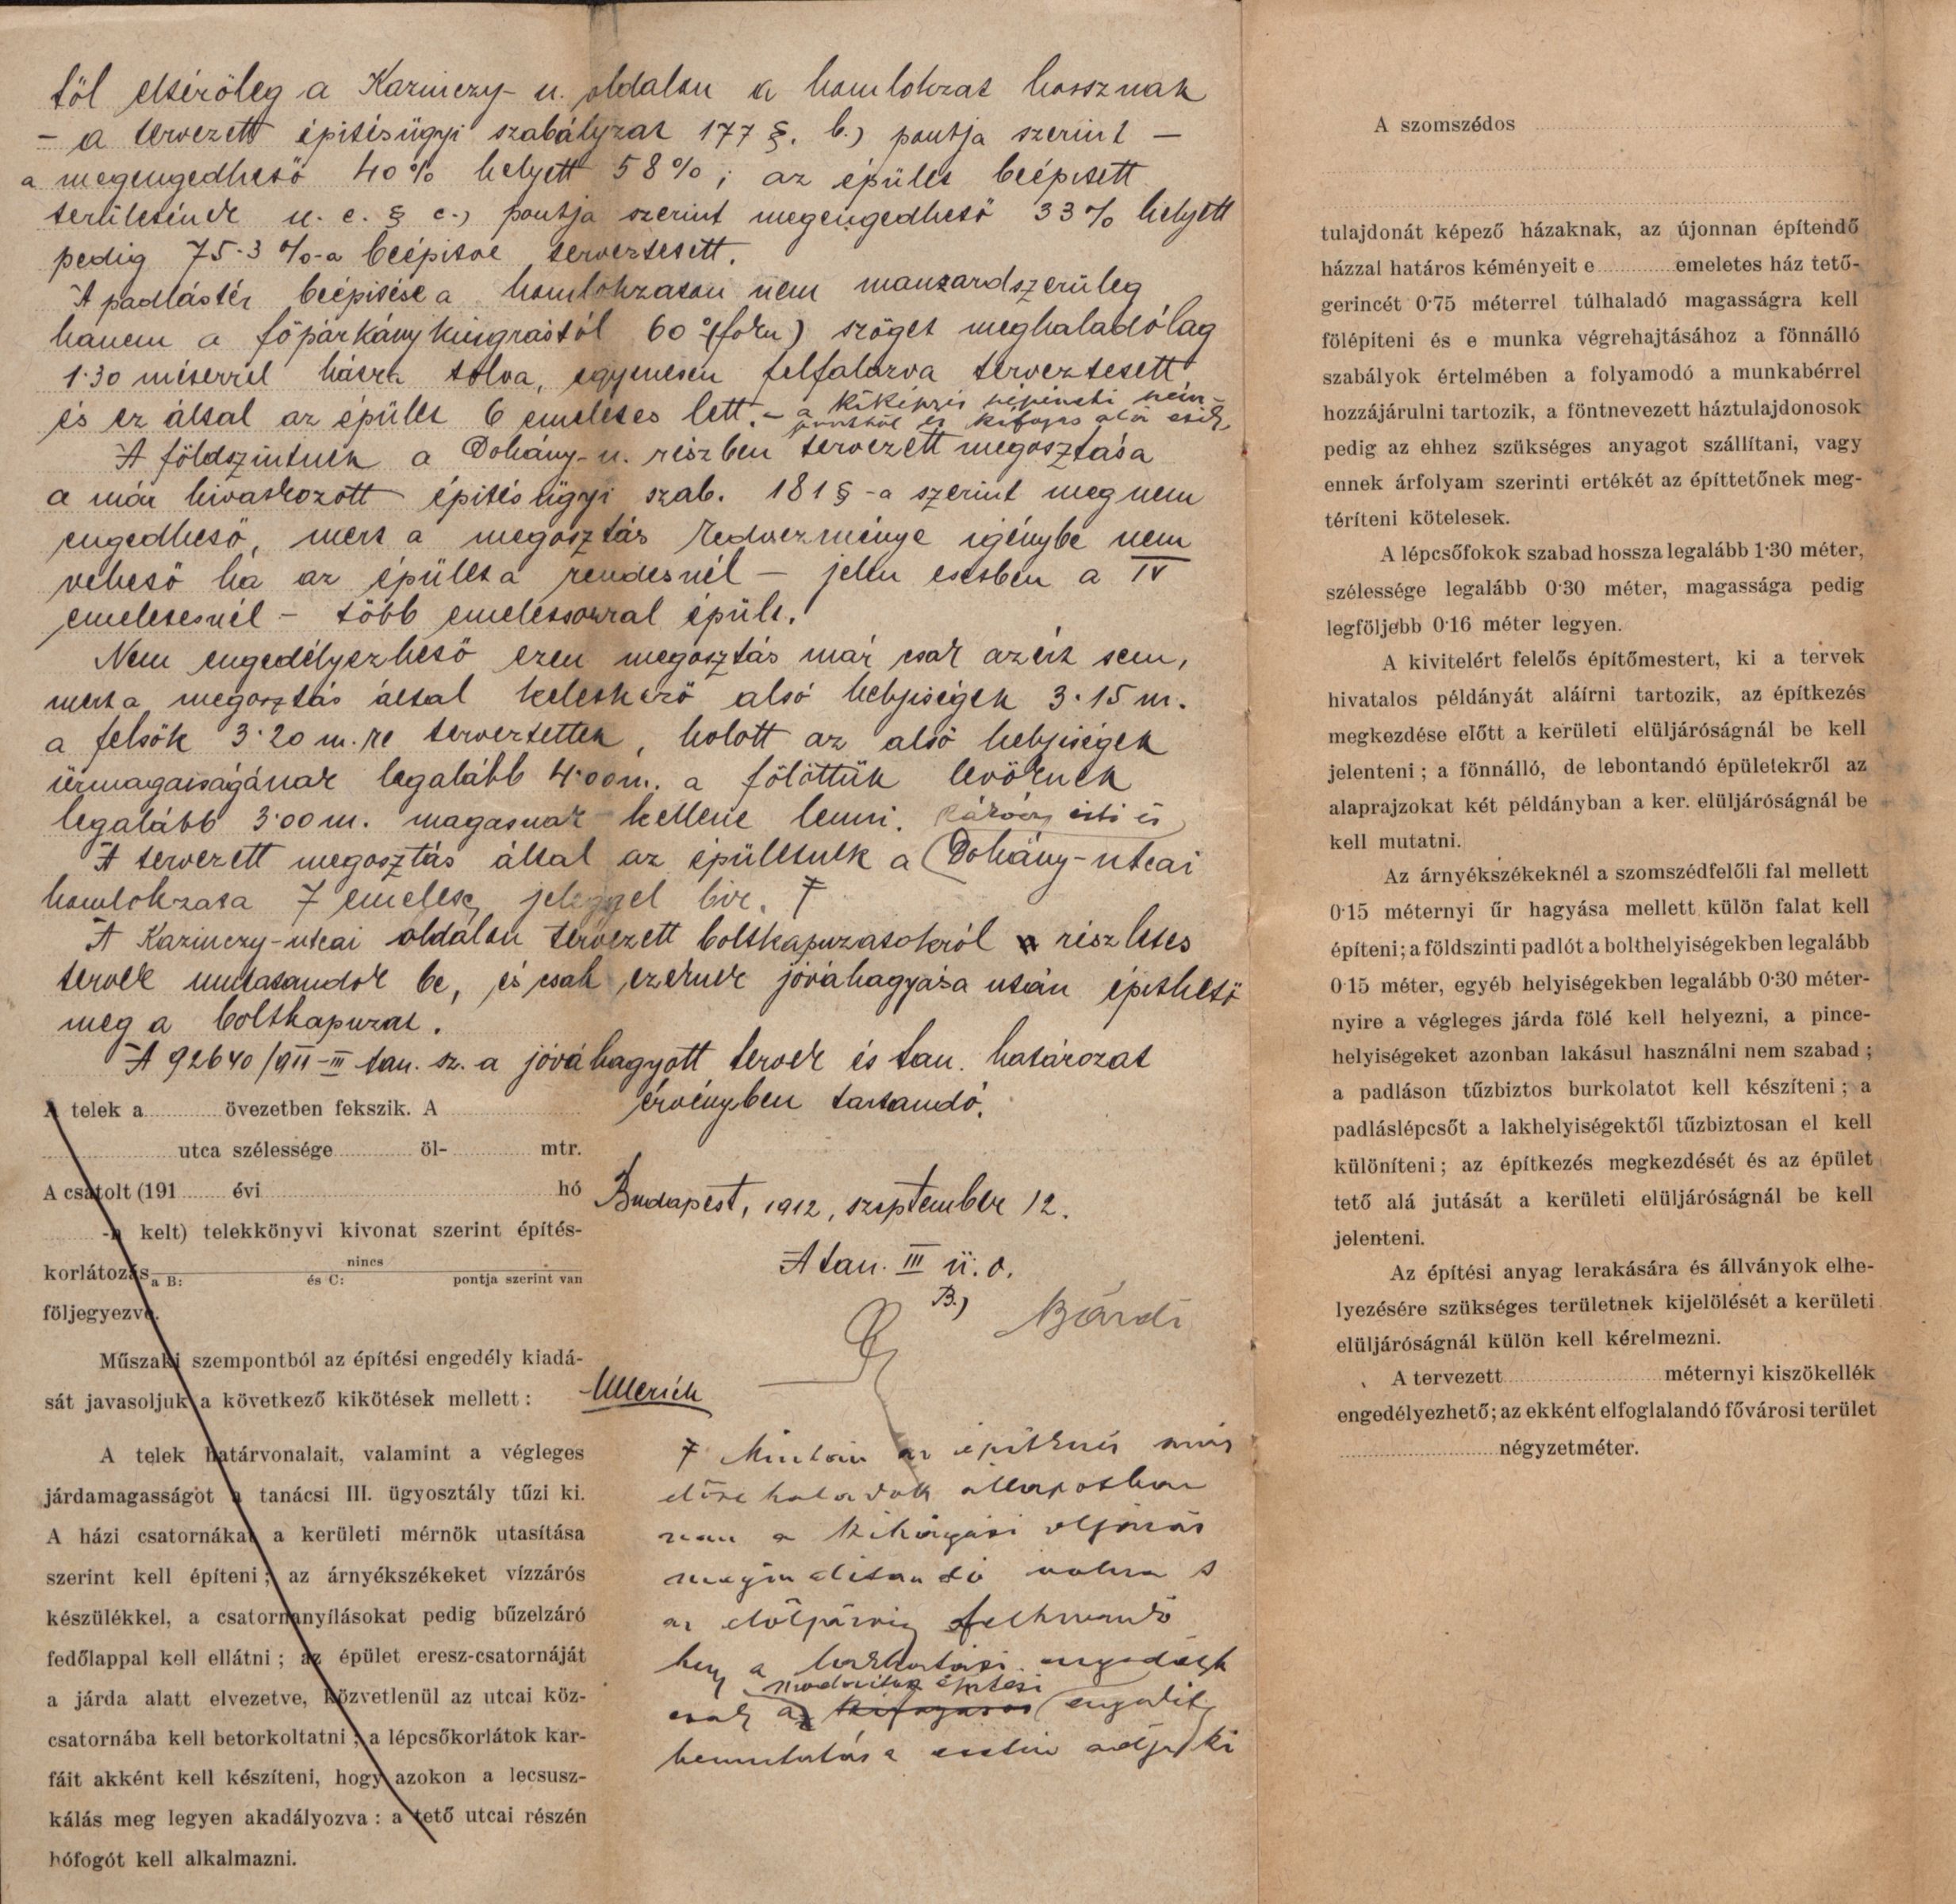 től eltérőleg a Kazinczy- u. oldalon a homlokzat hossznak
- a tervezett épitésügyi szabályzat 177 §. b.) pontja szerint -
a megengedhető 40% helyett 58%; az épület beépitett
területének u. e. § c.) pontja szerint megengedhető 33% helyett
pedig 75·3 %-a beépitve terveztetett.
A padlástér beépitése a homlokzaton nem manzardszerüleg
hanem a főpárkány kiugrástól 60° (foku) szöget meghaladólag
1·30 méterrel hátra tolva, egyenesen felfalazva terveztetett
és ez által az épület 6 emeletes lett. - a kiképzés
kifogás alá esik
A földszintnek a Dohány- u. részben tervezett megosztása
a már hivatkozott épitésügyi szab. 181 § -a szerint meg nem
engedhető, mert a megosztás kedvezménye igénybe nem
vehető ha az épület a rendesnél - jelen esetben a IV
emeletesnél - több emeletsorral épült.
Nem engedélyezhető ezen megosztás már csak azért sem,
mert a megosztás által keletkező alsó helyiségek 3·15 m.
a felsők 3·20 m.re terveztettek, holott az alsó helyiségek
ürmagasságának legalább 4·00 m. a fölöttük levőknek
legalább 3·00 m. magasnak kellene lenni.
A tervezett megosztás által az épületnek a Dohány-utcai
homlokzata 7 emeletes jeleggel bir.
A Kazinczy-utcai oldalon tervezett boltkapuzatokról részletes
tervek mutatandók be, és csak ezeknek jóváhagyása után épithető
meg a boltkapuzat.
A 92640/911-III tan. sz. a jóváhagyott tervek és tan. határozat
érvényben tartandó.
Budapest, 1912, szeptember 12.
A tan. III ü. o.
B.)
Bárdi
Ullerich
Miután az építkezés már
előre haladott állapotban
van a kihágási eljárás
megindítandó volna s
az elöljáróság felhívandó
hogy a lakhatási engedélyt
módosított építési
csak az engedély
bemutatása esetén adja ki
A telek a övezetben fekszik. A
utca szélessége öl- mtr.
A csatolt (191 évi hó
-n kelt) telekkönyvi kivonat szerint építés-
korlátozás nincs
a B: és C: pontja szerint van
följegyezve.
Műszaki szempontból az építési engedély kiadá-
sát javasoljuk a következő kikötések mellett :
A telek határvonalait, valamint a végleges
járdamagasságot a tanácsi III. ügyosztály tűzi ki.
A házi csatornákat a kerületi mérnök utasítása
szerint kell építeni ; az árnyékszékeket vízzárós
készülékkel, a csatornanyílásokat pedig bűzelzáró
fedőlappal kell ellátni ; az épület eresz-csatornáját
a járda alatt elvezetve, közvetlenül az utcai köz-
csatornába kell betorkoltatni ; a lépcsőkorlátok kar-
fáit akként kell készíteni, hogy azokon a lecsusz-
kálás meg legyen akadályozva : a tető utcai részén
hófogót kell alkalmazni.
A szomszédos
tulajdonát képező házaknak, az újonnan építendő
házzal határos kéményeit e emeletes ház tető-
gerincét 0·75 méterrel túlhaladó magasságra kell
fölépíteni és e munka végrehajtásához a fönnálló
szabályok értelmében a folyamodó a munkabérrel
hozzájárulni tartozik, a föntnevezett háztulajdonosok
pedig az ehhez szükséges anyagot szállítani, vagy
ennek árfolyam szerinti értékét az építtetőnek meg-
téríteni kötelesek.
A lépcsőfokok szabad hossza legalább 1·30 méter,
szélessége legalább 0·30 méter, magassága pedig
legföljebb 0·16 méter legyen.
A kivitelért felelős építőmestert, ki a tervek
hivatalos példányát aláírni tartozik, az építkezés
megkezdése előtt a kerületi elüljáróságnál be kell
jelenteni ; a fönnálló, de lebontandó épületekről az
alaprajzokat két példányban a ker. elüljáróságnál be
kell mutatni.
Az árnyékszékeknél a szomszédfelőli fal mellett
0·15 méternyi űr hagyása mellett külön falat kell
építeni ; a földszinti padlót a bolthelyiségekben legalább
0·15 méter, egyéb helyiségekben legalább 0·30 méter-
nyire a végleges járda fölé kell helyezni, a pince-
helyiségeket azonban lakásul használni nem szabad ;
a padláson tűzbiztos burkolatot kell készíteni ; a
padláslépcsőt a lakhelyiségektől tűzbiztosan el kell
különíteni ; az építkezés megkezdését és az épület
tető alá jutását a kerületi elüljáróságnál be kell
jelenteni.
Az építési anyag lerakására és állványok elhe-
lyezésére szükséges területnek kijelölését a kerületi
elüljáróságnál külön kell kérelmezni.
A tervezett méternyi kiszökellék
engedélyezhető; az ekként elfoglalandó fővárosi terület
négyzetméter.